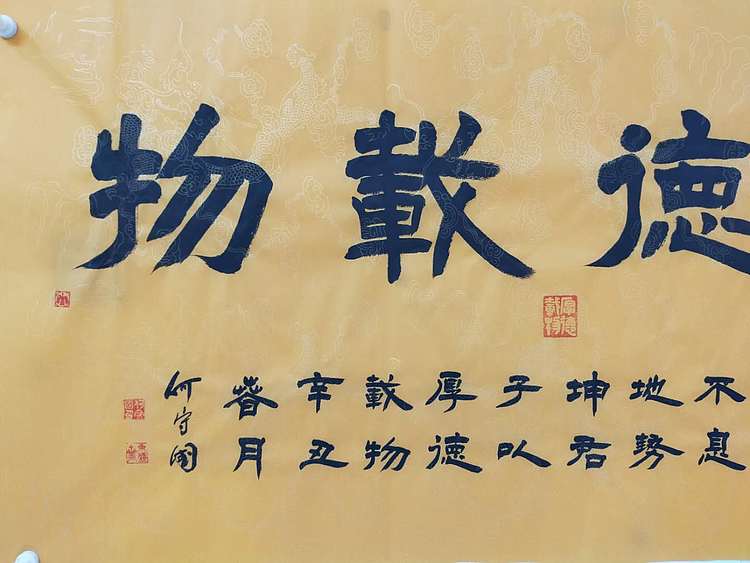 德載物
厚德
載物
不息
地勢
坤君
子以
厚德
載物
辛丑
春月
何守國